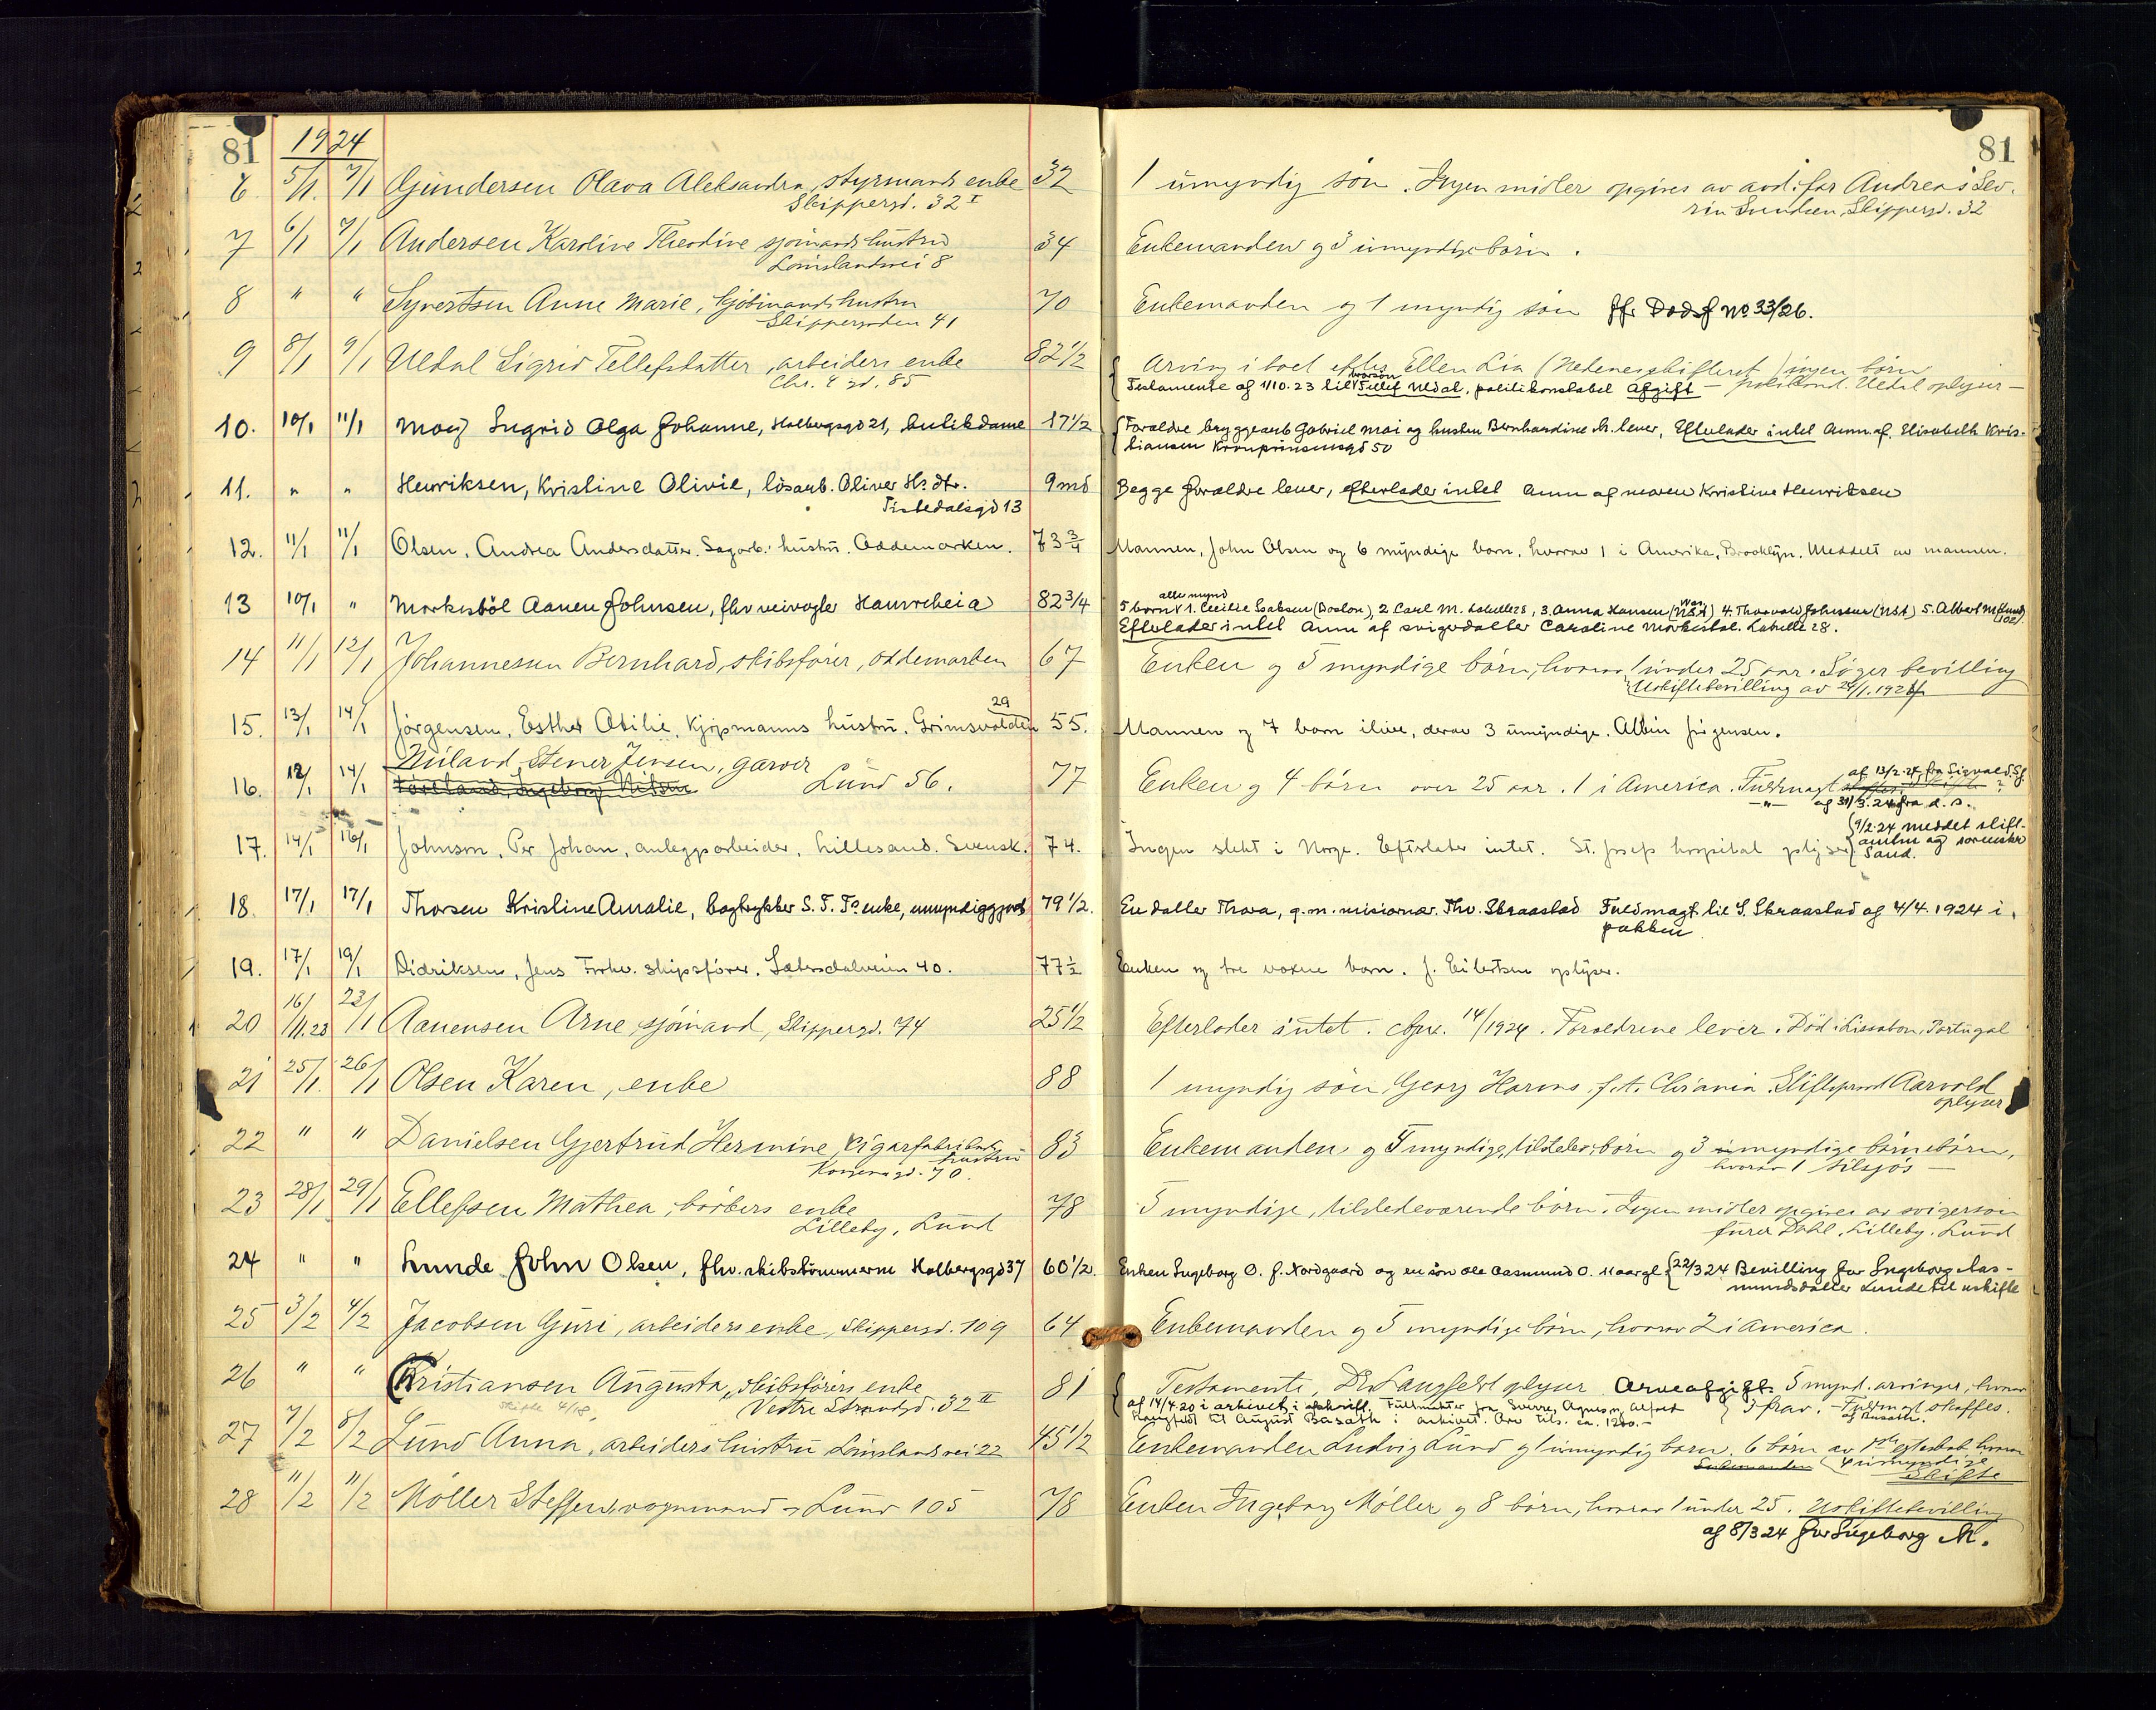 81 1924 81
6 5/1. 7/1 Gundersen Olava Aleksandra, styrmands enke 32 1 umyndig søn. Ingen midler opgives av avd. far Andreas Sev.
Skippergd. 32 I rin Svendsen, Skippergd. 32
7 6/1 7/1 Andersen Karoline Theodine sjømands hustru 34 Enkemanden og 3 umyndige børn.
Lömslandsvei 8
8 " " Syvertsen Anne Marie, kjøbmands hustru 70 Enkemanden og 1 myndig søn jfr. Dødsf No. 33/26.
Skippergaden 41
9 8/1 9/1 Uldal Sigrid Tellefsdatter, arbeiders enke 82 1/2 Arving i boet efter Ellen Lia (Nedenes skifteret) ingen børn
Chr. 4 gd. 85 Testamente af 1/10.23 til brorsøn Tellef Uldal, politikonstabel Afgift — politikonst. Uldal oplyser —
10. 10/1 11/1 Moej Ingrid Olga Johanne, Holbergsgd 21, butikdame 17 1/2 Forældre bryggearb Gabriel Moi og hustru Bernhardine M. lever, Efterlader intet Anm. af. Elisabeth Kris-
tiansen Kronprinsensgd 50
11. " " Henriksen, Kristine Olivie, løsarb. Oliver Hs dtr. 9 md Begge forældre lever, efterlader intet Anm af moren Kristine Henriksen
Tistedalsgd 13
12. 11/1 11/1 Olsen, Andrea Andersdatter. Sagarb.' hustru. Oddemarken. 73 3/4 Mannen, John Olsen og 6 myndige barn, hvorav 1 i Amerika, Brooklyn. Meddelt av mannen.
13 10/1 " Morkesbøl Aanen Johnsen, fhv veivogter Hamreheia 82 3/4 5 børn alle mynd 1. Cecilie Isaksen (Boston), 2 Carl M. Labelle 28, 3. Anna Hansen (USA) 4. Thorvald Johnsen (USA) 5. Albert M (Lund 102)
Efterlader intet Anm af svigerdatter Caroline Morkesbøl. Labelle 28.
14 11/1 12/1 Johannessen Bernhard, skibsfører, Oddemarken 67 Enken og 5 myndige børn, hvorav 1 under 25 aar. Søger bevilling
Uskiftebevilling av 24/1.1924
15. 13/1 14/1 Jørgensen, Esther Otilie, Kjøpmanns hustru. Grimsvolden 29 55. Mannen og 7 barn ilive, derav 3 umyndige. Albin Jørgensen.
16. 12/1 14/1 Niland Stener Jensen, garver Lund 56. 77 Enken og 4 børn over 25 aar. 1 i America. Fuldmagt af 13/2.24 fra Sigvald Sj
—"— af 31/3.24 fra d. s.
17. 14/1 16/1 Johnson, Per Johan, anleggsarbeider, Lillesand. Svensk. 74. Ingen slekt i Norge. Efterlater intet. St. Josefs hospital oplyser 9/2.24 meddelt skift-
amtm og sorenskr
Sand.
18. 17/1 17/1 Thorsen Kristine Amalie, bogtrykker S. T. Ts enke, umyndiggjort 79 1/2. En datter Thora, g.m. misionær. Thv. Skraastad Fuldmagt til S. Skraastad af 4/4. 1924 i
pakken
19. 17/1 19/1 Didriksen, Jens Forhv. skipsfører. Sætersdalveien 40. 77 1/2 Enken og tre voxne barn. J. Eilertsen oplyser.
20 16/11.23 23/1 Aanensen Arne, sjømand, Skippergd. 74 25 1/2 Efterlader intet. 14/1924. Forældrene lever. Død i Lissabon, Portugal
21 25/1. 26/1 Olsen Karen, enke 88 1 myndig søn Georg Harms, f.t. Chriania. Stiftsprovst Aarvold
oplyser
22 " " Danielsen Gjertrud Hermine, Cigarfabrikants hustru 83 Enkemanden og 4 myndige, tilstedev. børn og 3 umyndige børnebørn,
Kongensgd. 70. hvorav 1 tilsjøs —
23 28/1 29/1 Ellefsen Mathea, bødkers enke 78 5 myndige, tilstedeværende børn. Ingen midler opgives av svigersøn
Lilleby, Lund furer Dahl, Lilleby. Lund
24 " " Lunde John Olsen, fhv. skibstømmerm Holbergsgd 37 60 1/2. Enken Ingeborg O. f. Nordgaard og en søn Ole Aasmund O. 11 aar gl 22/3 24 Bevilling for Ingeborg Aas-
mundsdatter Lunde til uskifte
25 3/2 4/2 Jacobsen Guri, arbeiders enke, Skippergd. 109 64 Enkemanden og 5 myndige børn, hvorav 2 i America.
26 " " Kristiansen Augusta, skibsførers enke 81 Testamente, Dr. Langfeldt oplyser. Arveafgift. 5 mynd. arvinger, hvorav
Skifte 4/18. Vestre Strandgd. 32 II af 14/4.20 i arkivet i afskrift. Fullmakter fra Sverre, Agnes og Alfred 3 frav. — Fuldmagt skaffes.
Langfeldt til August Basath i arkivet. Arv tils. ca. 1200.— af Basath.
27 7/2 8/2 Lund Anna, arbeiders hustru Lömslandsvei 22 45 1/2 Enkemanden Ludvig Lund og 1 umyndig barn. 6 børn av 1ste egteskab hvorav
Enkemanden 4 umyndige
Skifte
28 11/2 11/2 Møller Steffen, vognmand - Lund 105 78 Enken Ingeborg Møller og 8 børn, hvorav 1 under 25. Uskiftebevilling
af 8/3 24 for Ingeborg M.